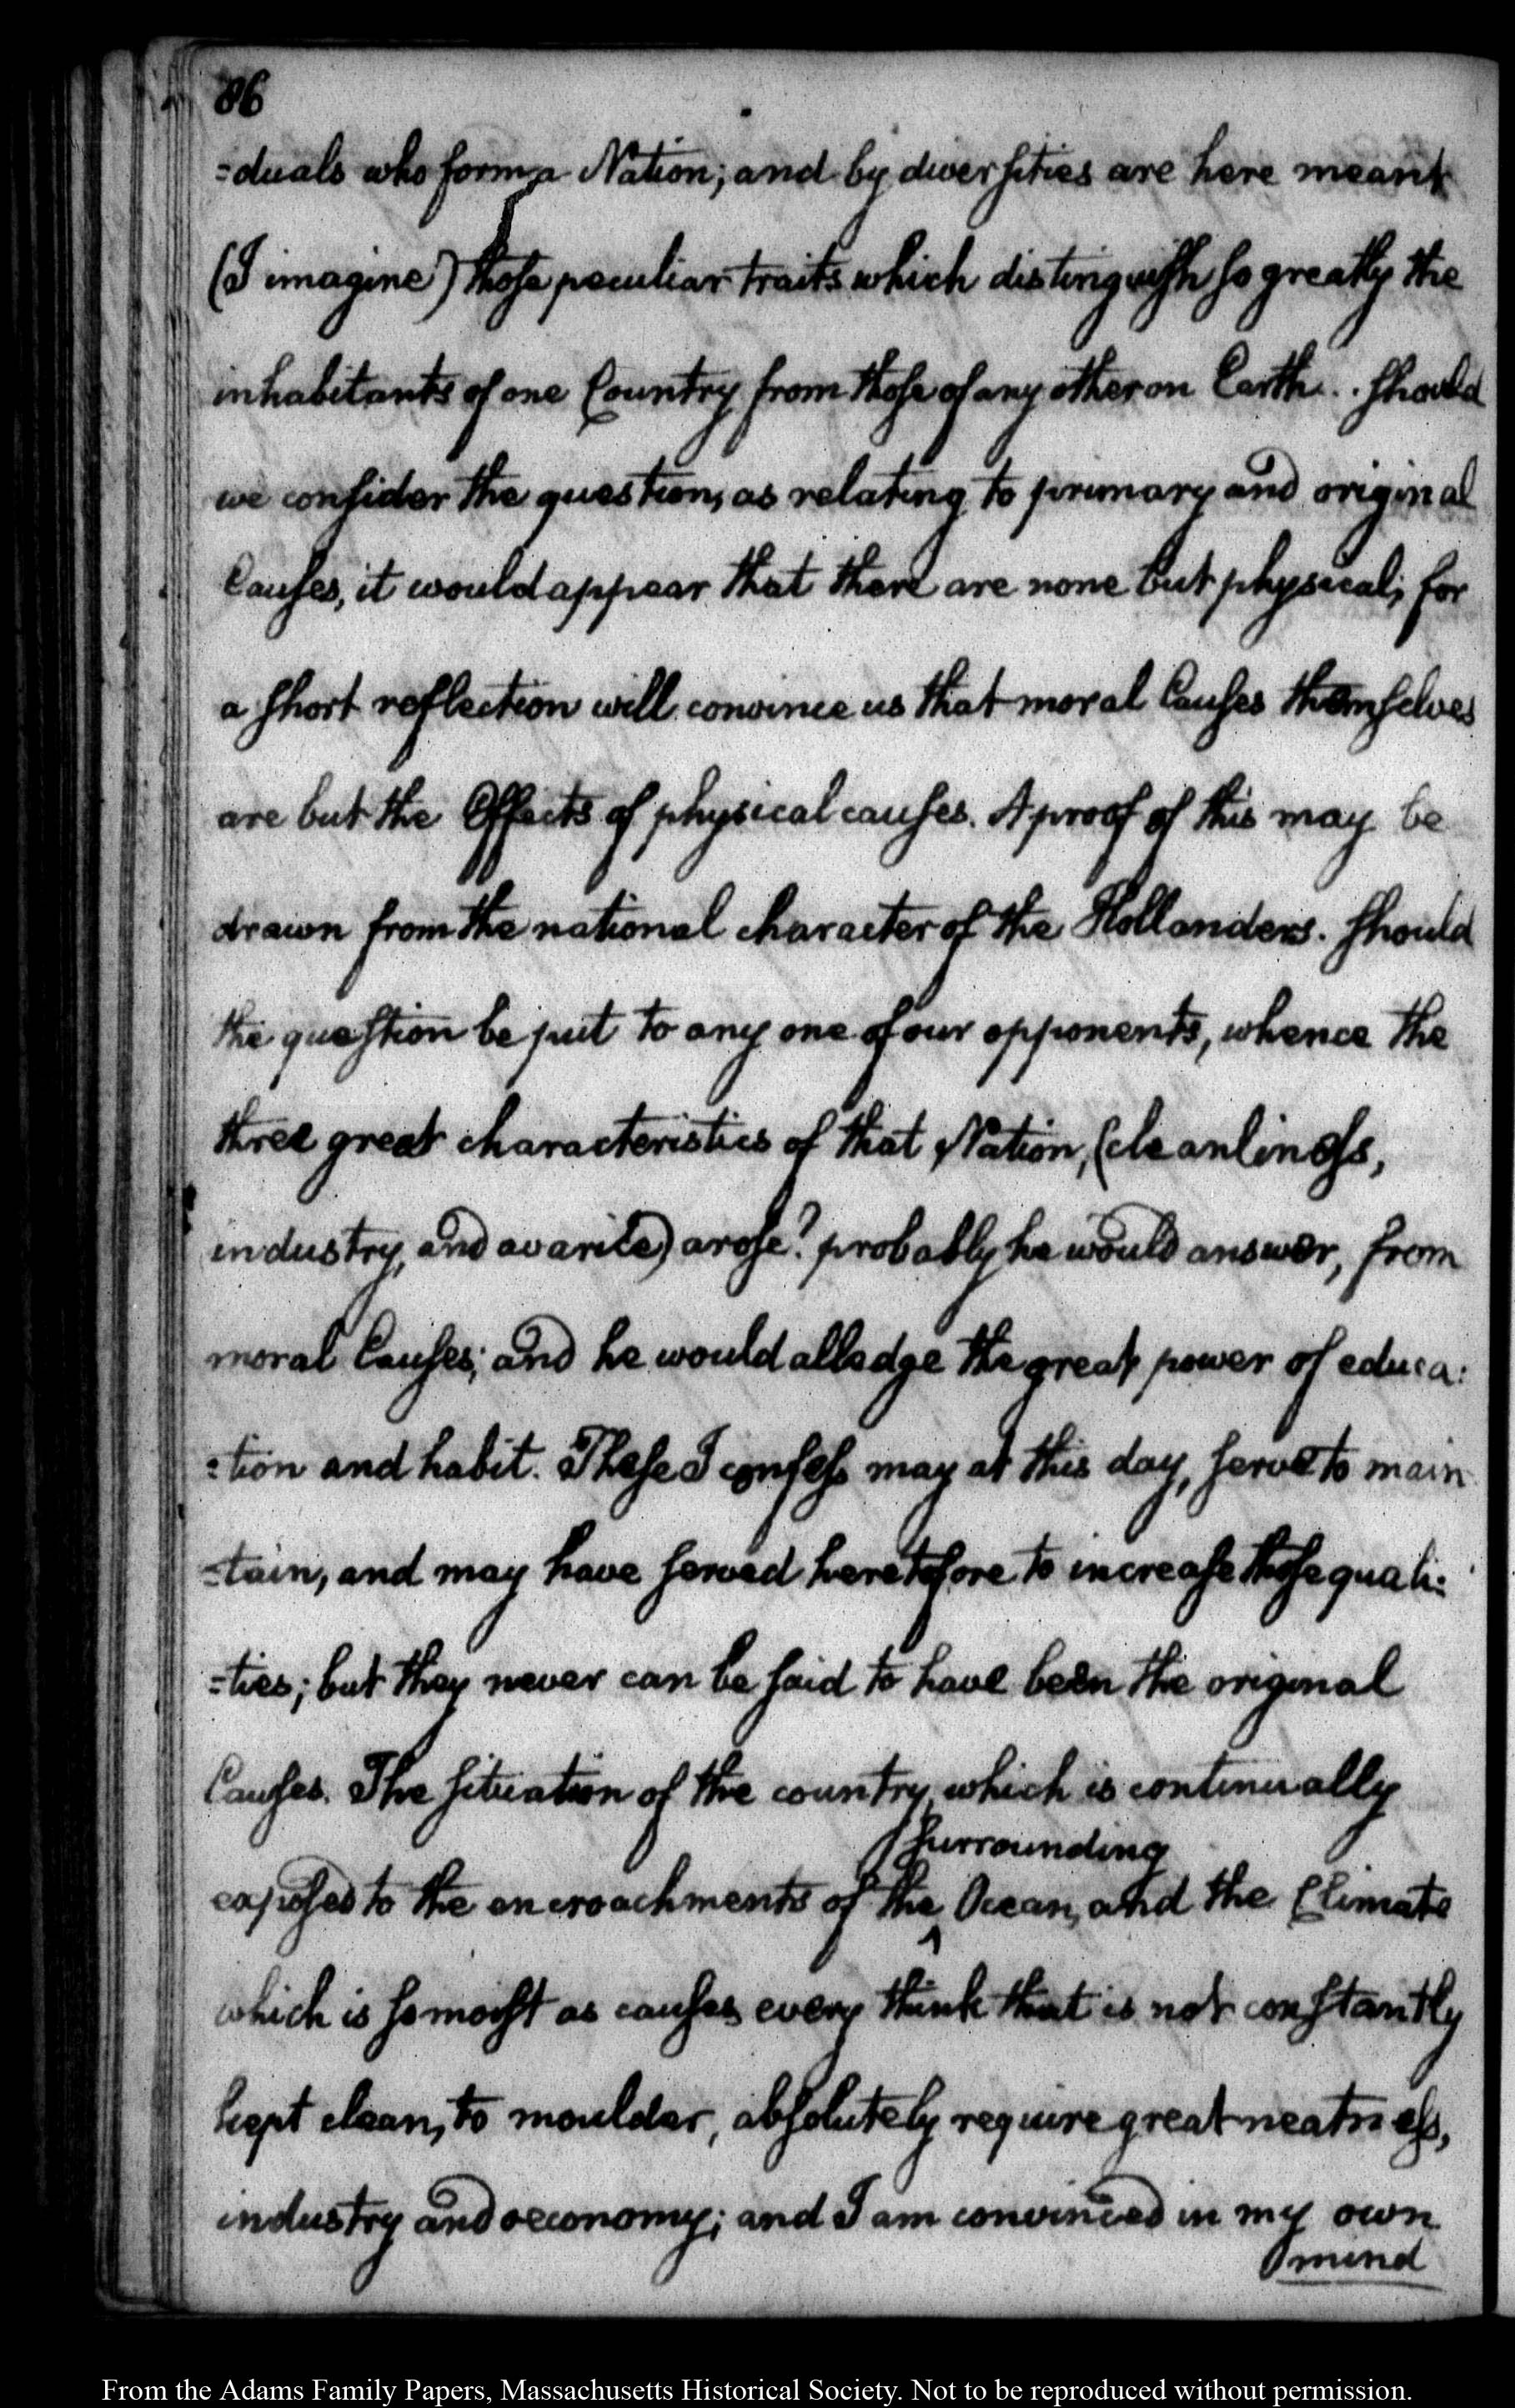 86
=duals who form a Nation; and by diversities are here meant
(I imagine) those peculiar traits which distinguish so greatly the
inhabitants of one Country from those of any other on Earth.. Should
we consider the question, as relating to primary and original
Causes, it would appear that there are none but physical; for
a short reflection will convince us that moral Causes themselves
are but the Effects of physical causes. A proof of this may be
drawn from the national character of the Hollanders. Should
the question be put to any one of our opponents, whence the
three great characteristics of that Nation, (cleanliness,
industry, and avarice) arose? probably he would answer, from
moral Causes; and he would alledge the great power of educa:
:tion and habit. These I confess may at this day, serve to main
=tain, and may have served heretofore to increase those quali:
=ties; but they never can be said to have been the original
Causes. The situation of the country, which is continually
surrounding
exposed to the encroachments of the ^ Ocean, and the Climate
which is so moist as causes every think that is not constantly
kept clean, to moulder, absolutely require great neatness,
industry and oeconomy; and I am convinced in my own
mind
From the Adams Family Papers, Massachusetts Historical Society. Not to be reproduced without permission.